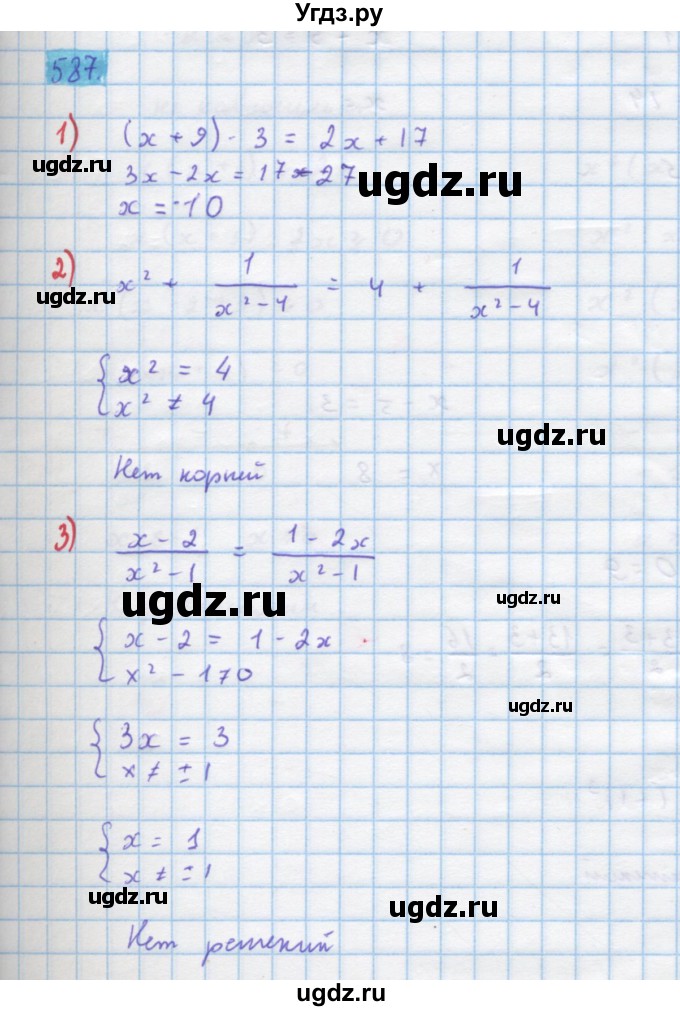 Угдз.ру
587.
1) (x + 9) · 3 = 2x + 17
ugdz.ru
3x - 2x = 17 - 27
ugdz.ru
x = -10
2) x² + 1/(x² - 4) = 4 + 1/(x² - 4)
ugdz.ru
{ x² = 4
x² ≠ 4
ugdz.ru
Нет корней
3) (x - 2)/(x² - 1) = (1 - 2x)/(x² - 1)
ugdz.ru
ugdz.ru
{ x - 2 = 1 - 2x
x² - 1 ≠ 0
ugdz.ru
{ 3x = 3
x ≠ ±1
{ x = 1
x ≠ ±1
ugdz.ru
ugdz.ru
Нет решений
ugdz.ru